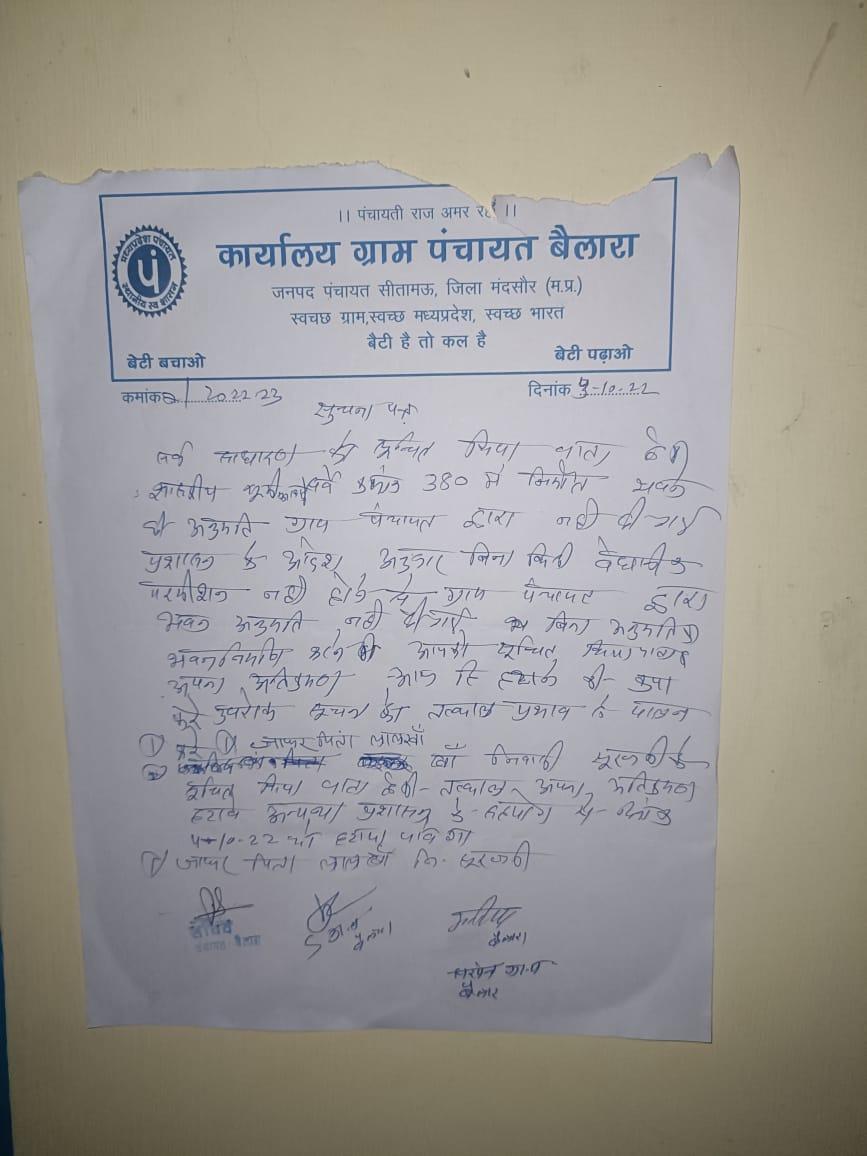 ।। पंचायती राज अमर रहे ।।
कार्यालय ग्राम पंचायत बैलारा
जनपद पंचायत सीतामऊ, जिला मंदसौर (म.प्र.)
स्वचछ ग्राम,स्वच्छ मध्यप्रदेश, स्वच्छ भारत
बैटी है तो कल है
बेटी बचाओ
बेटी पढ़ाओ
मध्यप्रदेश पंचायत
पं
स्थानीय स्व शासन
कमांक 2022.23
दिनांक 9-10-22
सुचना पत्र
सर्व साधारण को सुचित किया जाता है की
शासकीय सर्वे क्रमांक 380 में निर्मित भवन
की अनुमति ग्राम पंचायत द्वारा नही दी गई
प्रशासन के आदेश अनुसार बिना किसी वैधानिक
परमीशन नही होने से ग्राम पंचायत द्वारा
भवन अनुमति नही दी गई बिना अनुमति
भवन निर्माण करने आपको सूचित किया जाता है
अपना अतिक्रमण आप हटाने की कृपा
करे उपरोक्त सूचना का तत्काल प्रभाव से पालन
① करे ① जाफर पिता लालखाँ
② खाँ निवासी सुरजनी
सूचित किया जाता है की तत्काल अपना अतिक्रमण
हटावे अन्यथा प्रशासन के सहयोग से दिनांक
4-10-22 को हटाया जावेगा
① जाफर पिता लालखाँ नि. सुरजनी
सचिव
पंचायत बैलारा
ग्रा.पं.
बैलारा
बैलारा
सरपंच ग्रा.पं
बैलारा